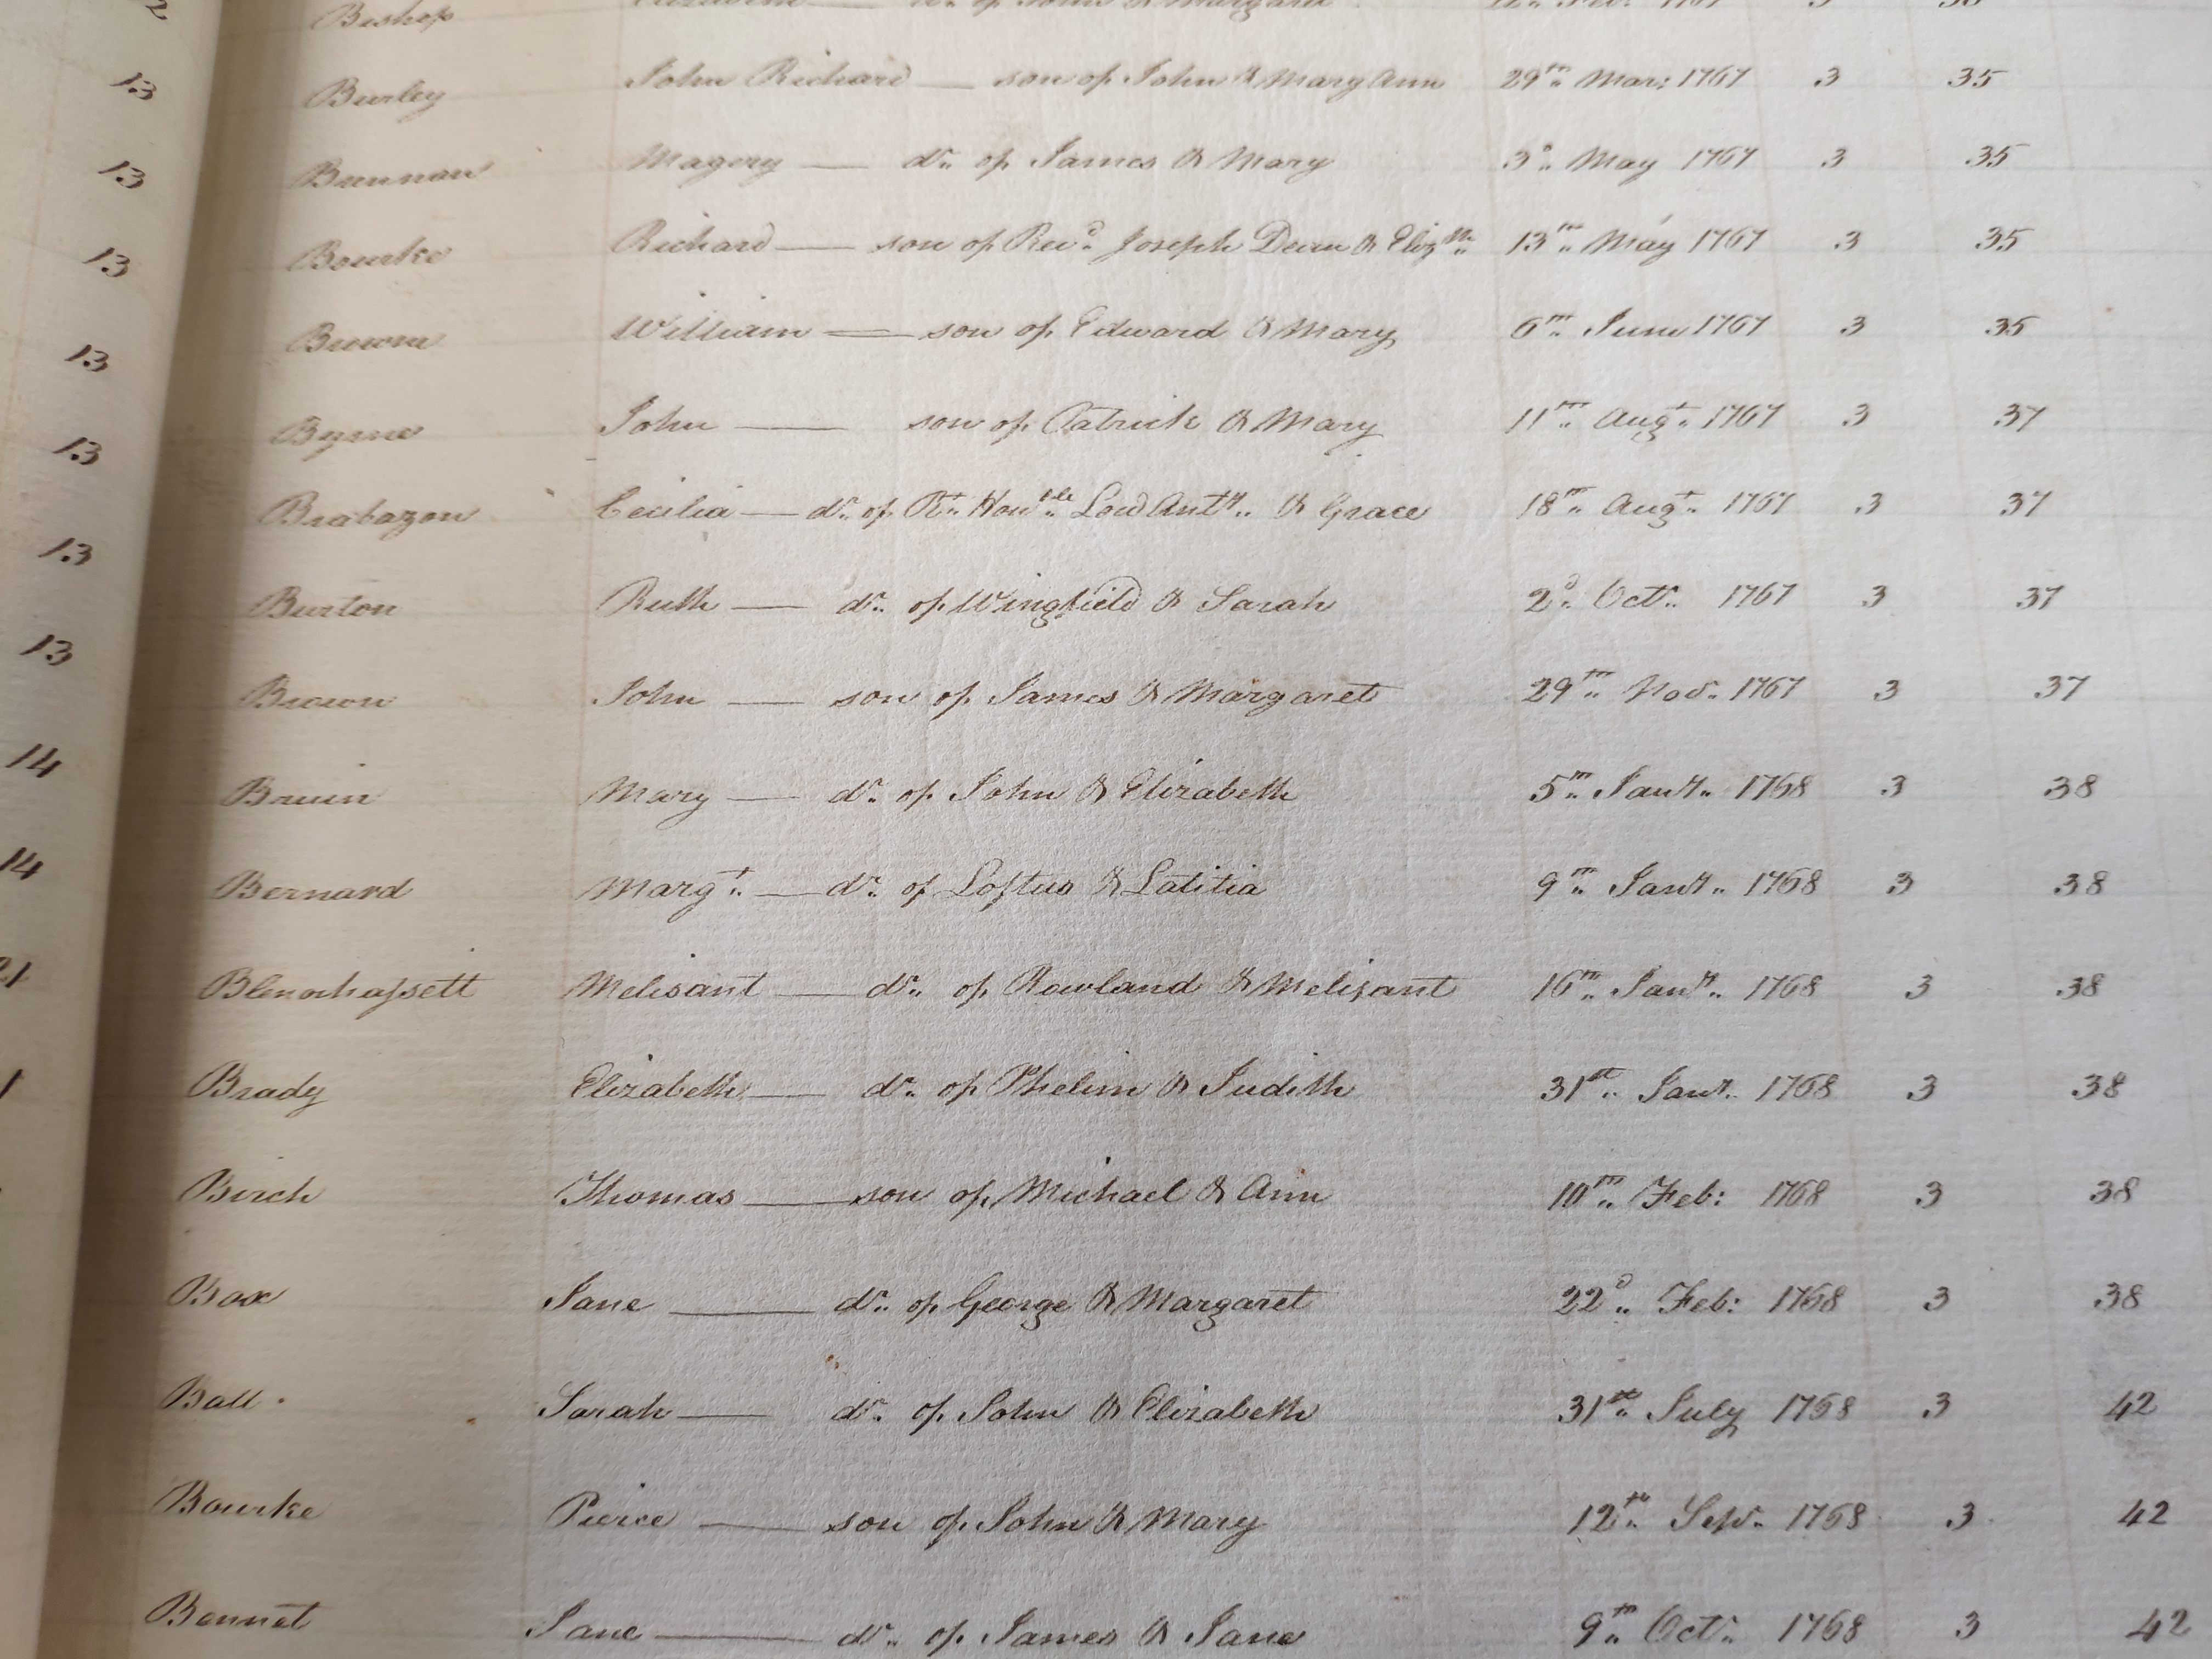 Bishop
13 Burley John Richard — son of John & Mary Ann 29th.. Mar: 1767 3 35
13 Brennan Magery — dr.. of James & Mary 3d.. May 1767 3 35
13 Bourke Richard — son of Revd.. Joseph Dean & Elizth.. 13th.. May 1767 3 35
13 Browne William — son of Edward & Mary 6th.. June 1767 3 35
13 Byrne John — son of Patrick & Mary 11th.. Augt.. 1767 3 37
13 Brabazon Cecilia — dr.. of Rt.. Honble.. Lord Anty.. & Grace 18th.. Augt.. 1767 3 37
13 Burton Ruth — dr.. of Wingfield & Sarah 2d.. Octr.. 1767 3 37
14 Brown John — son of James & Margaret 29th.. Nov.. 1767 3 37
14 Bruin Mary — dr.. of John & Elizabeth 5th.. Jany.. 1768 3 38
Bernard Margt.. — dr.. of Loftus & Latitia 9th.. Jany.. 1768 3 38
Blenorhassett Melisant — dr.. of Rowland & Melisant 16th.. Jany.. 1768 3 38
Brady Elizabeth — dr.. of Phelim & Judith 31st.. Jany.. 1768 3 38
Birch Thomas — son of Michael & Ann 10th.. Feb: 1768 3 38
Box Jane — dr.. of George & Margaret 22d.. Feb: 1768 3 38
Ball Sarah — dr.. of John & Elizabeth 31st.. July 1768 3 42
Bourke Pierce — son of John & Mary 12th.. Sepr.. 1768 3 42
Bennet Jane — dr.. of James & Jane 9th.. Octr.. 1768 3 42